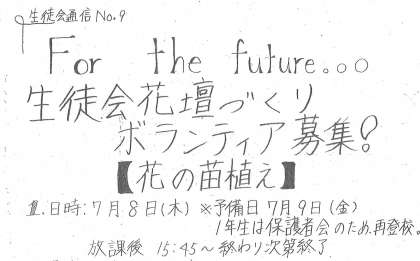 生徒会通信No.9
For the future...
生徒会花壇づくり
ボランティア募集!
【花の苗植え】
日時:7月8日(木) ※予備日7月9日(金)
1年生は保護者会のため、再登校。
放課後 15:45～終わり次第終了